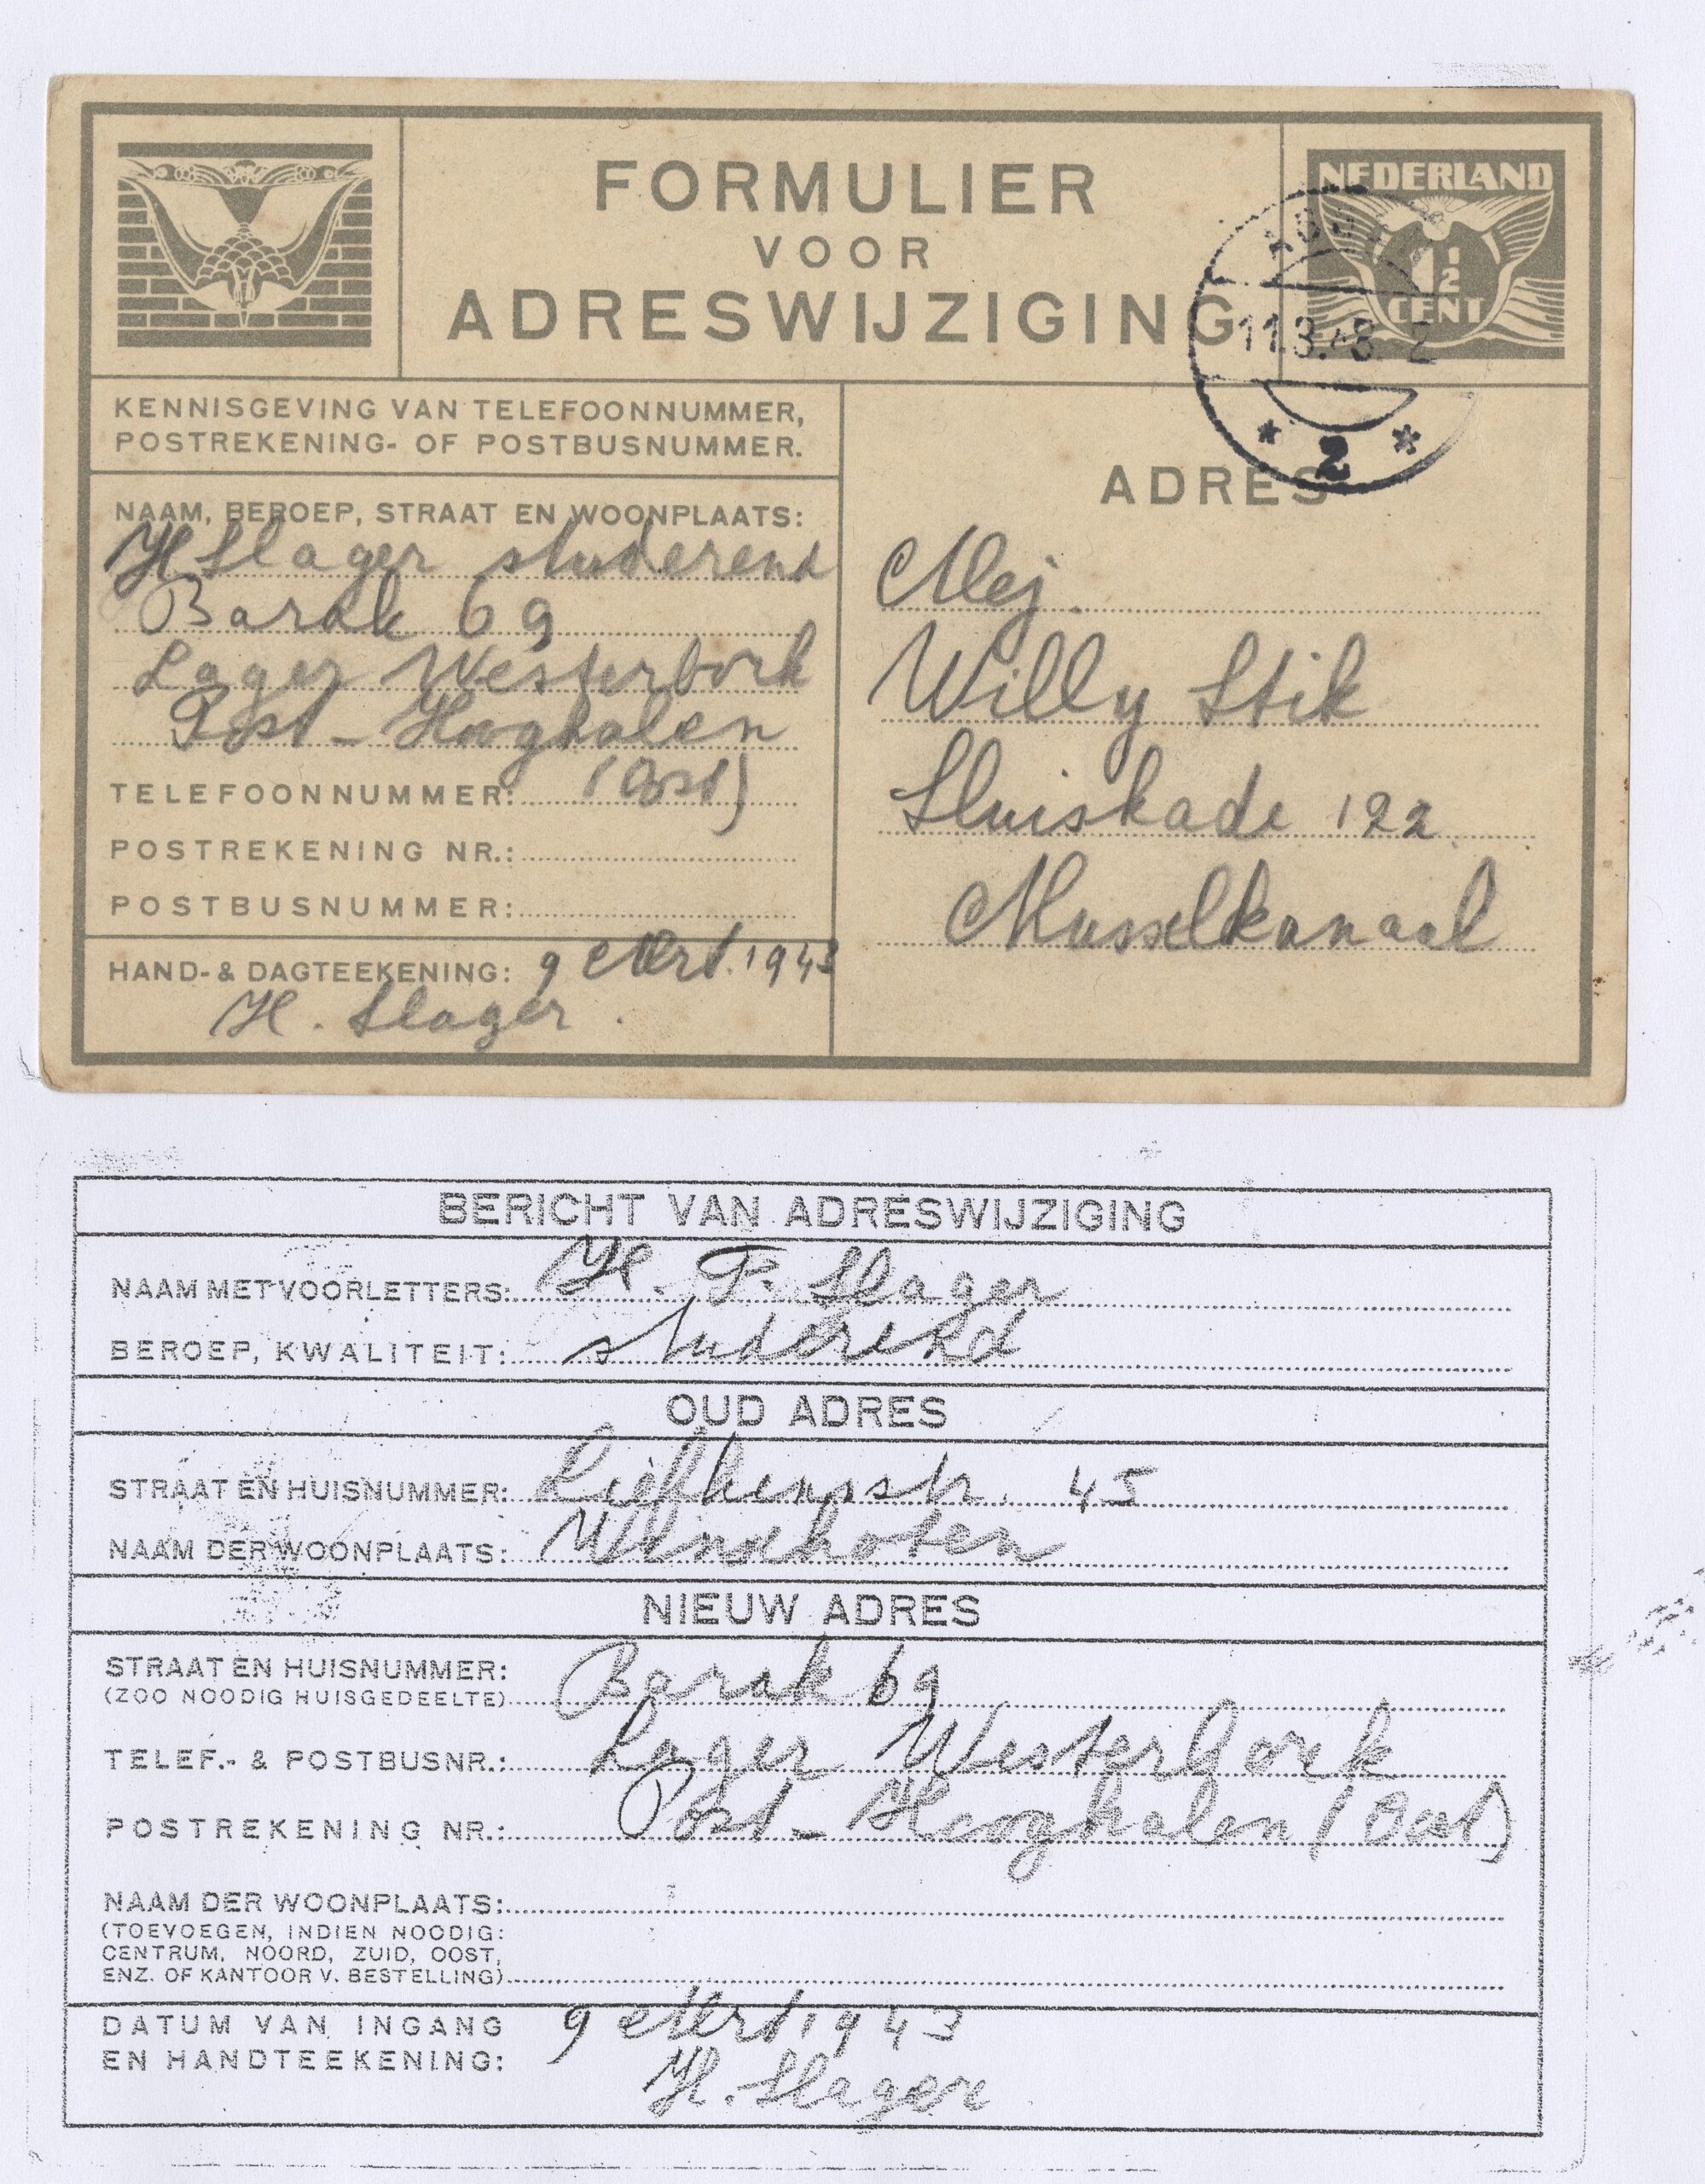 FORMULIER
VOOR
ADRESWIJZIGING
NEDERLAND
1½
CENT
11.3. 2
2
KENNISGEVING VAN TELEFOONNUMMER,
POSTREKENING- OF POSTBUSNUMMER.
NAAM, BEROEP, STRAAT EN WOONPLAATS:
H Slager studerend
Barak 69
Lager Westerbork
Post - Hooghalen
TELEFOONNUMMER: (Oost)
POSTREKENING NR.:
POSTBUSNUMMER:
HAND- & DAGTEEKENING: 9 Mrt. 1943
H. Slager.
ADRES
Mej.
Willy Stik
Sluiskade 122
Musselkanaal
BERICHT VAN ADRESWIJZIGING
NAAM MET VOORLETTERS: H. P. Slager
BEROEP, KWALITEIT: studerend
OUD ADRES
STRAAT EN HUISNUMMER: 45
NAAM DER WOONPLAATS: Winschoten
NIEUW ADRES
STRAAT EN HUISNUMMER: Barak 69
(ZOO NOODIG HUISGEDEELTE)
TELEF.- & POSTBUSNR.: Lager Westerbork
POSTREKENING NR.: Post - Hooghalen (Oost)
NAAM DER WOONPLAATS:
(TOEVOEGEN, INDIEN NOODIG:
CENTRUM, NOORD, ZUID, OOST,
ENZ. OF KANTOOR V. BESTELLING)
DATUM VAN INGANG 9 Mrt 1943
EN HANDTEEKENING: H. Slager